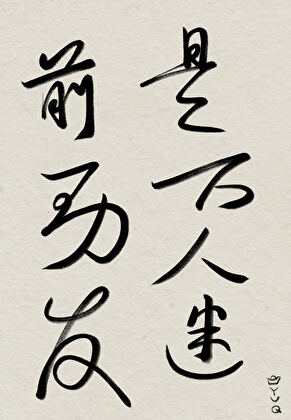 是万人迷
前男友